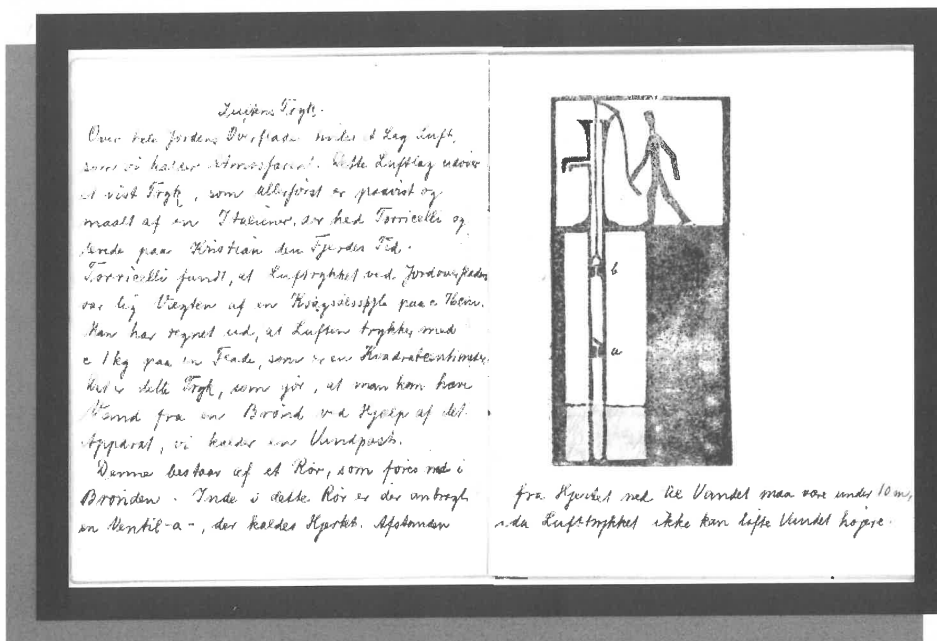 Luftens Tryk.
Over hele Jordens Overflade hviler et Lag Luft,
som vi kalder Atmosfæren. Dette Luftlag udøver
et vist Tryk, som allerførst er paavist og
maalt af en Italiener, der hed Torricelli og
levede paa Kristian den Fjerdes Tid.
Torricelli fandt, at Lufttrykket ved Jordoverfladen
var lig Vægten af en Kvægsølvsøjle paa c 76 cm.
Man har regnet ud, at Luften trykker med
c 1 kg paa en Flade, som er en Kvadratcentimeter.
Det er dette Tryk, som gør, at man kan hæve
Vand fra en Brønd ved Hjælp af det
Apparat, vi kalder en Vandpost.
Denne bestaar af et Rør, som føres ned i
Brønden. Inde i dette Rør er der anbragt
en Ventil -a-, der kaldes Hjertet. Afstanden
b
a
fra Hjertet ned til Vandet maa være under 10 m,
da Lufttrykket ikke kan løfte Vandet højere.